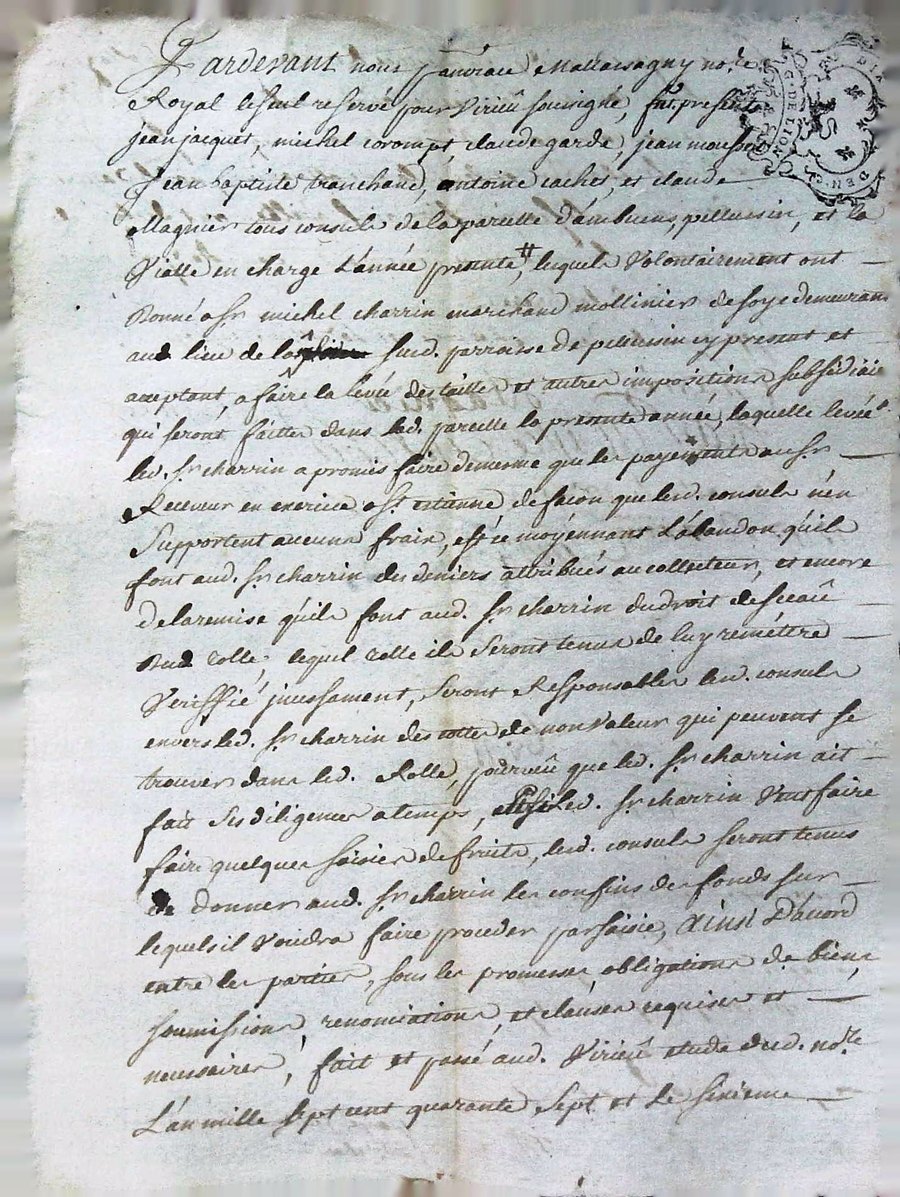 Pardevant nous pancrace Mattassagny no.re
Royal le seul reservé pour Virieû soussigné, fut present
jean jacquet, michel corompt, claude garde, jean mousset
jean baptiste tranchand, antoine cachet, et claude
Magnier tous consuls de la parcelle d'ambuens, pellussin, et la
Vialle en charge L'année presente, # lequels Volontairement ont
Donné a Sr michel charrin marchand mollinier de soye demeurant
aud lieu de la sud. parroisse de pellussin cy present et
acceptant, a faire la levée des tailles et autres impositions subsidiai
qui seront faittes dans lad. parcelle la presente année, laquelle levée
led. Sr charrin a promis faire de mesme que les payements au Sr
Receveur en exercice a St. estienne de façon que lesd. consuls n'en
Supportent aucuns frais, est ce moÿennant L'abandon qu'ils
font aud. Sr charrin des deniers attribués au collecteur, et encore
de la remise qu'ils font aud. Sr charrin du droit de sceaû
Dud rolle, lequel rolle ils seront tenus de luy remétre
Veriffié jncessament, seront Responsables lesd. consuls
envers led. Sr charrin des cottes de non Valeur qui peuvent se
trouver dans led. Rolle, pourveû que led. Sr charrin ait
fait ses diligences a temps, et si led. Sr charrin Veut faire
faire quelques saisies de fruits, lesd. consuls seront tenus
de donner aud. Sr charrin les confins des fonds sur
lequels il Voudra faire proceder par saisie, Ainsi D'acord
entre les parties, sous les promesses obligations de biens,
soumissions, renonciations, et clauses requises et
necessaires, fait et passé aud. Virieû etude dud. no.re
L'an mille sept cent quarante sept et le sixieme
G. DE LION
DEN.